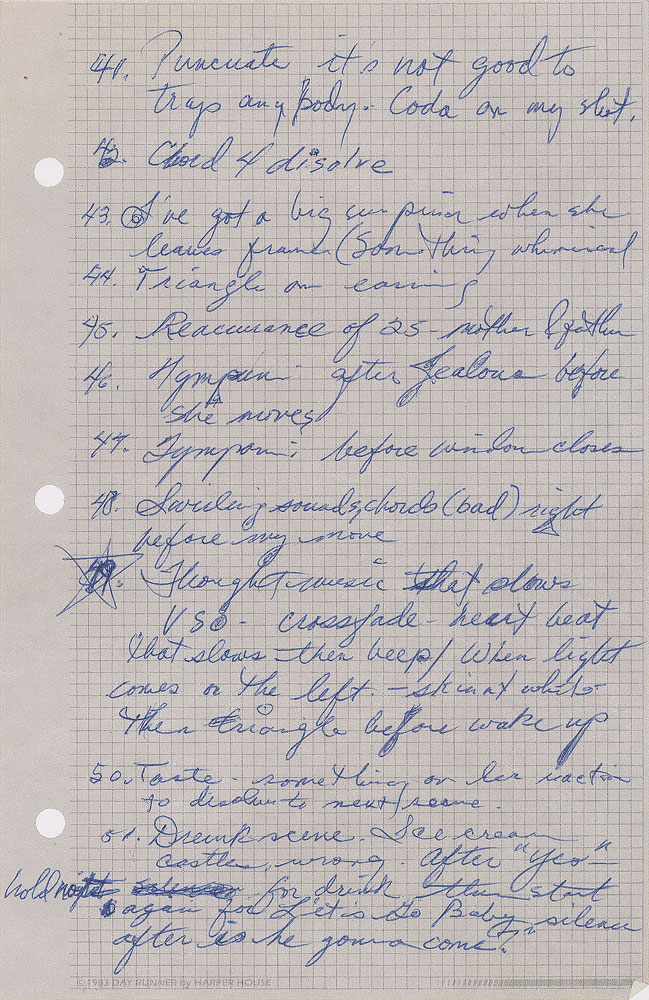 41. Puncuate it's not good to
trap anybody. Coda on my shot.
42. Chord 4 disolve
43. I've got a big surprise when she
leaves frame (Something whimsical
44. Triangle on earring
45. Reaccurance of 25 - mother & father
46. Tympani after Jealous before
she moves
47. Tympani: before window closes
48. Swirling sounds, chords (bad) right
before my move
49. Thought music that slows
VSO - crossfade - heart beat
that slows - then beep / When light
comes on the left. - white
Then triangle before wake up
50. Taste - something on her reaction
to disolve to next scene.
51. Drunk scene. Ice cream
castles, wrong. After "Yes"
hold for drink then start
again for Let's Go Baby silence
after is he gonna come?
©1983 DAY RUNNER by HARPER HOUSE